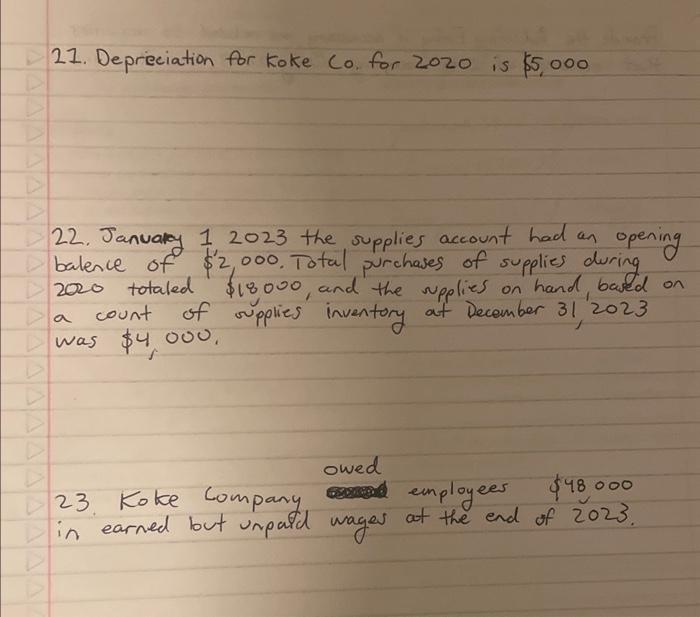 21. Depreciation for Koke Co. for 2020 is $5,000
22. January 1 2023 the supplies account had an opening
balence of $2,000. Total purchases of supplies during
2020 totaled $18,000, and the supplies on hand, based on
a count of supplies inventory at December 31, 2023
was $4,000.
owed
23. Koke Company employees $48,000
in earned but unpaid wages at the end of 2023.